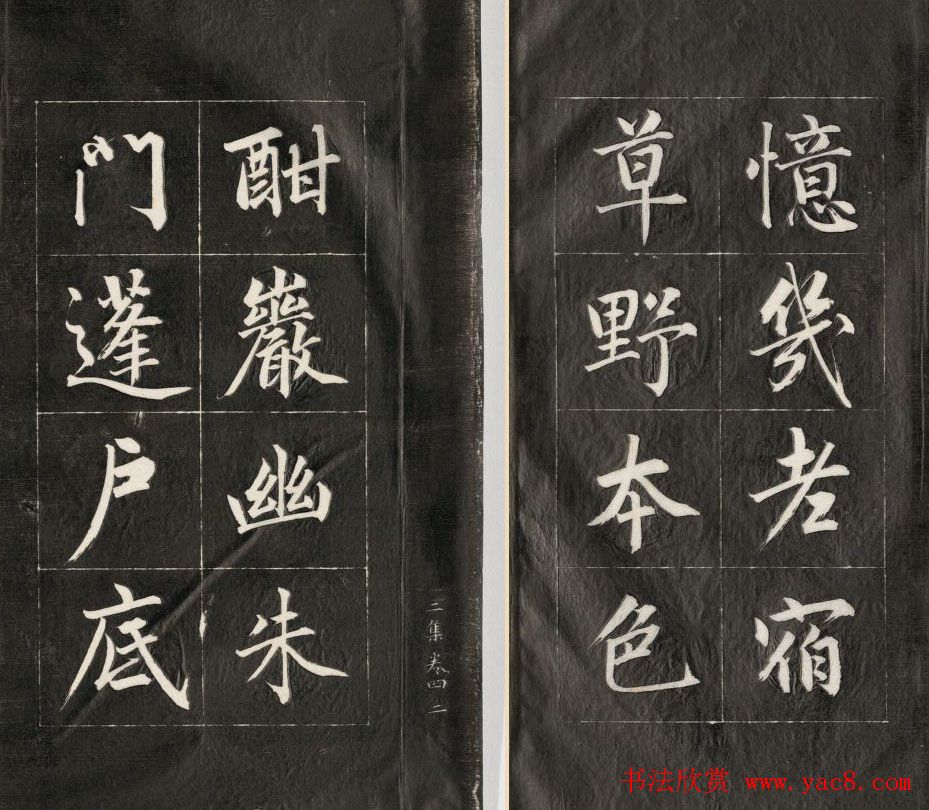 憶幾老宿
草野本色
酣巖幽朱
門蓬户底
二集卷四二
书法欣赏 www.yac8.com